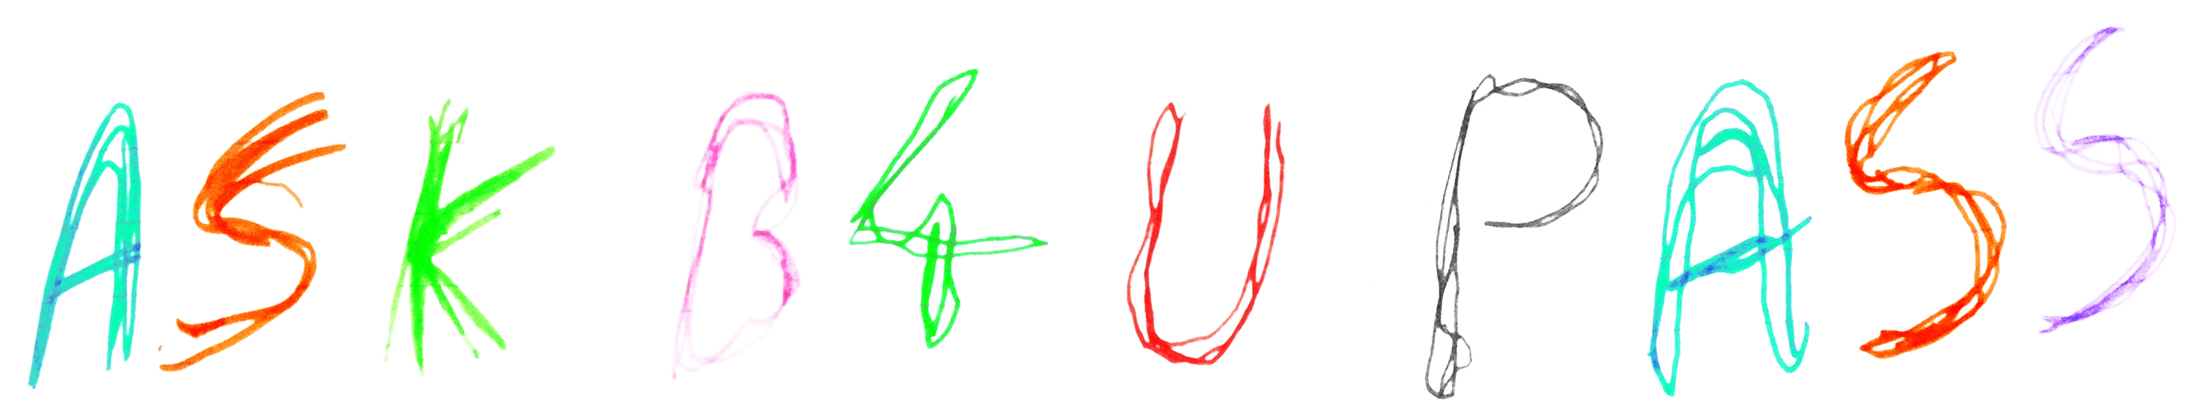 ASK B4U PASS